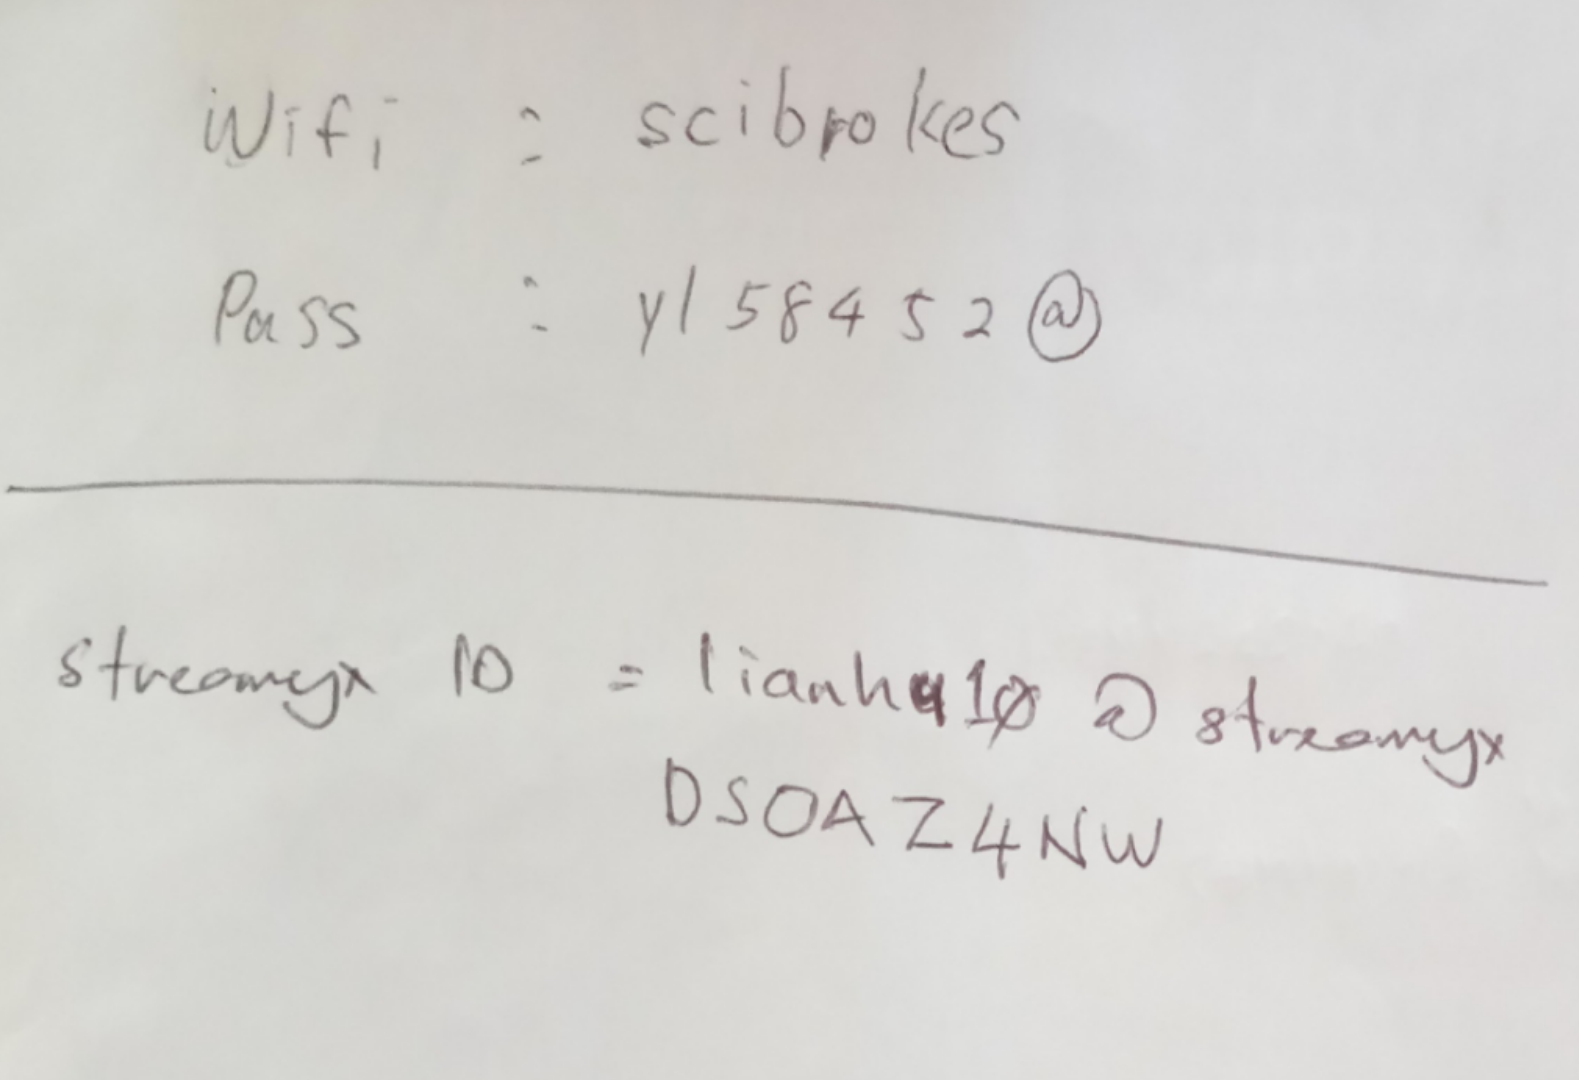 Wifi : scibrokes
Pass : yl58452@
streamyx ID = lianhu10 @ streamyx
DSOAZ4NW